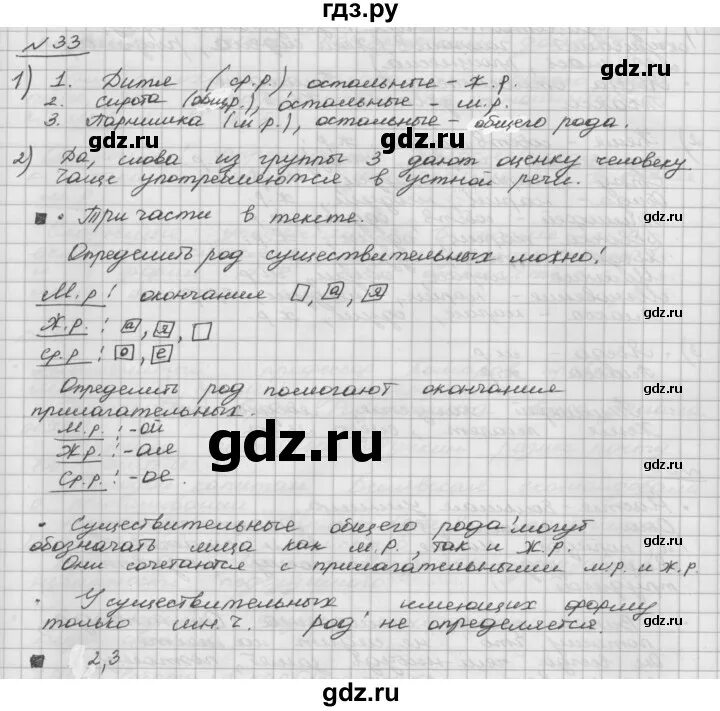 гдз.ру
№ 33
1) 1. Дитя (ср.р.), остальные – ж.р.
2. Сирота (общ.р.), остальные – м.р.
3. Парнишка (м.р.), остальные – общего рода.
gdz.ru gdz.ru
2) Да, слова из группы 3 дают оценку человеку
чаще употребляются в устной речи.
gdz.ru
• Три части в тексте.
gdz.ru
Определить род существительных можно:
М.р: окончания □, а, я
gdz.ru
Ж.р.: а, я, □
Ср.р: о, е
Определить род помогают окончания
gdz.ru
прилагательных.
М.р.: -ой
gdz.ru
Ж.р: -ая
gdz.ru
Ср.р.: -ое.
• Существительные общего рода могут
gdz.ru
обозначать лица как м.р., так и ж.р.
Они сочетаются с прилагательными м.р. и ж.р.
• У существительных, имеющих форму
только мн.ч. род не определяется.
gdz.ru
2,3
gdz.ru